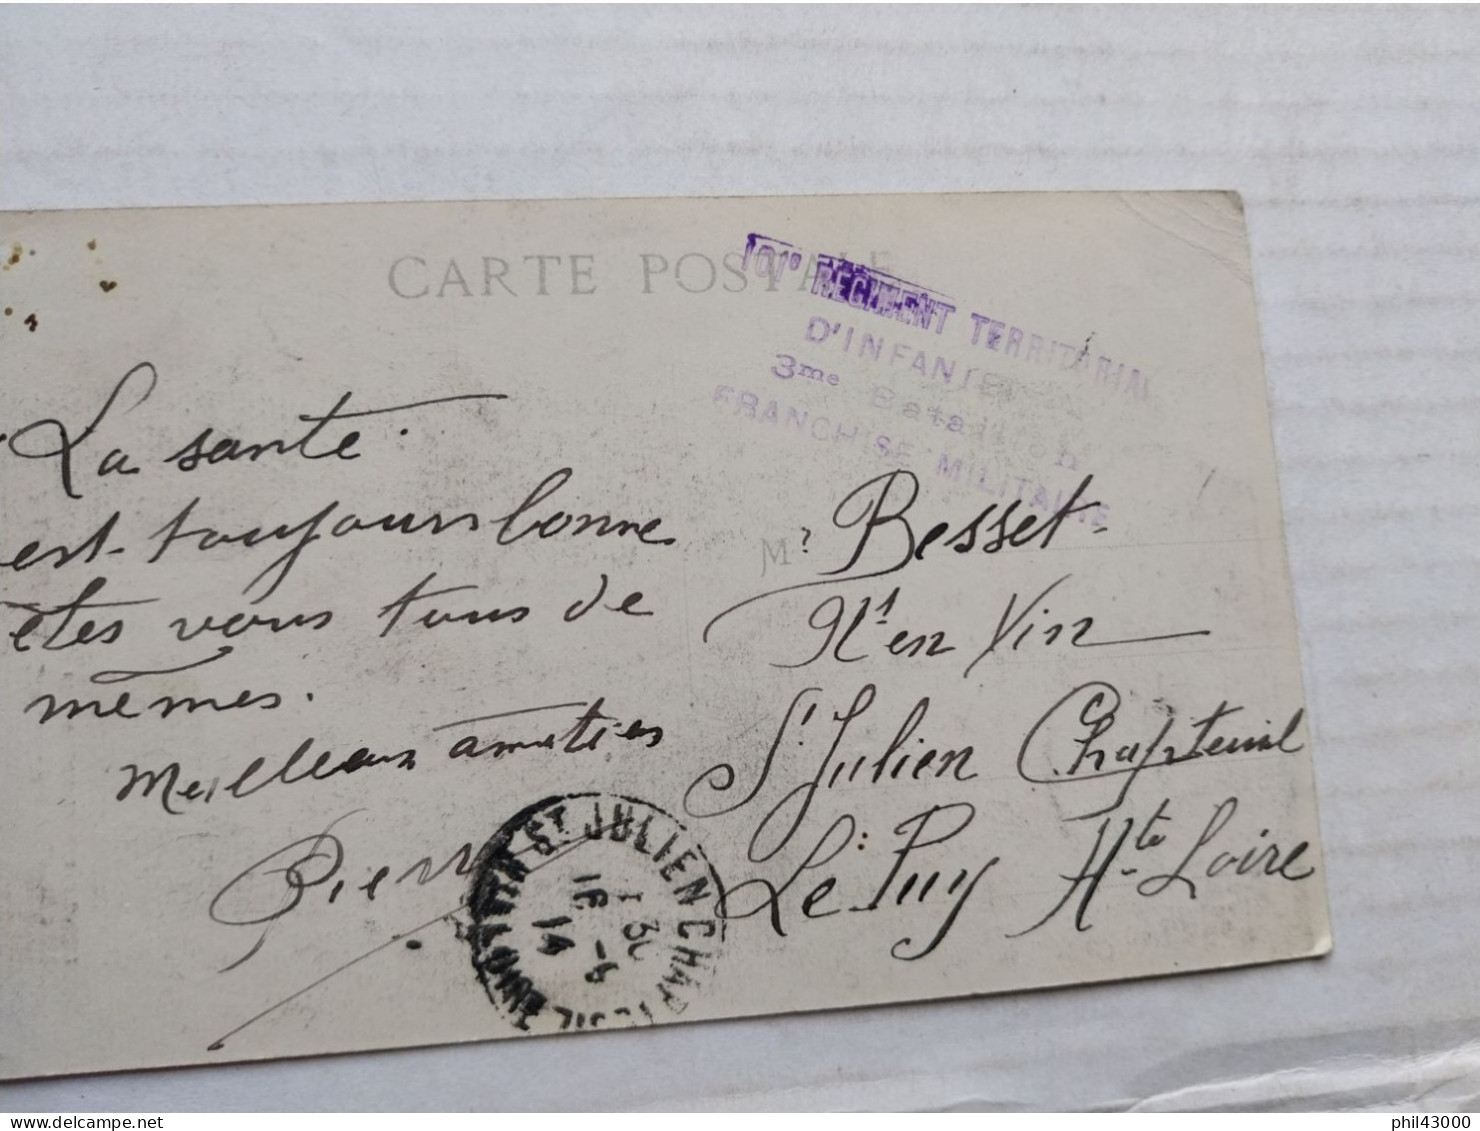 CARTE POSTALE
101e RÉGIMENT TERRITORIAL
D'INFANTERIE
3me Bataillon
FRANCHISE MILITAIRE
La santé
est toujours bonne
êtes vous tous de
mêmes.
Meilleurs amitiés
Pierre
M. Besset
Nt en Vin
St Julien Chapteuil
Le Puy Hte Loire
ST JULIEN CHAPTEUIL
HTE LOIRE
1 30
16 - 9
14
phil43000